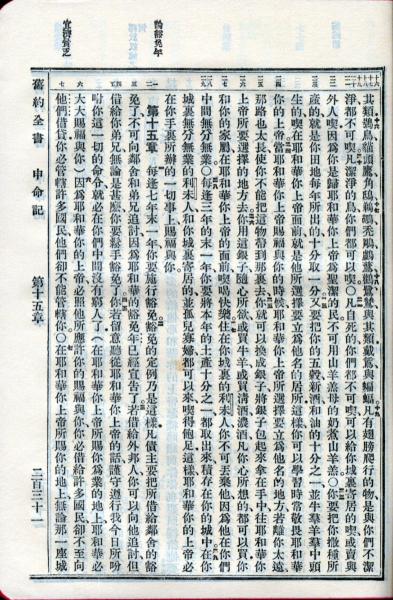 其類鸚鳥貓頭鷹角鴟鵜鶘禿鵰鸕鷀鸛鷺鷥與其類戴鵀與蝙蝠凡有翅膀爬行的物是與你們不潔
淨都不可喫凡潔淨的鳥你們都可以喫○凡自死的你們都不可喫可以給你城裏寄居的喫或賣與
外人喫因爲你是歸耶和華你上帝爲聖潔的民不可用山羊羔母的奶煮山羊羔○你要把你撒種所
產的就是你田地每年所出的十分取一分又要把你的五穀新酒和油的十分之一並牛羣羊羣中頭
生的喫在耶和華你上帝面前就是他所選擇要立爲他名的居所這樣你可以學習時常敬畏耶和華
你的上帝當耶和華你上帝賜福與你的時候耶和華你上帝所選擇要立爲他名的地方若離你太遠
那路也太長使你不能把這物帶到那裏去你就可以換成銀子將銀子包起來拿在手中往耶和華你
上帝所要選擇的地方去你用這銀子隨心所欲或買牛羊或買清酒濃酒凡你心所想的都可以買你
和你的家屬在耶和華你上帝的面前喫喝快樂住在你城裏的利未人你不可丟棄他因爲他在你們
中間無分無業○每逢三年的末一年你要將本年的土產十分之一都取出來積存在你的城中在你
城裏無分無業的利未人和你城裏寄居的並孤兒寡婦都可以來喫得飽足這樣耶和華你的上帝必
在你手裏所辦的一切事上賜福與你
第十五章 每逢七年末一年你要施行豁免豁免的定例乃是這樣凡債主要把所借給鄰舍的豁
免了不可向鄰舍和弟兄追討因爲耶和華的豁免年已經宣告了若借給外邦人你可以向他追討但
借給你弟兄無論是甚麼你要鬆手豁免了你若留意聽從耶和華你上帝的話謹守遵行我今日所吩
咐你這一切的命令就必在你們中間沒有窮人了(在耶和華你上帝所賜你爲業的地上耶和華必
大大賜福與你)因爲耶和華你的上帝必照他所應許你的賜福與你你必借給許多國民卻不至向
他們借貸你必管轄許多國民他們卻不能管轄你○在耶和華你上帝所賜你的地上無論那一座城
舊約全書 申命記 第十五章 二百三十一
論豁免年
宜濟貧乏